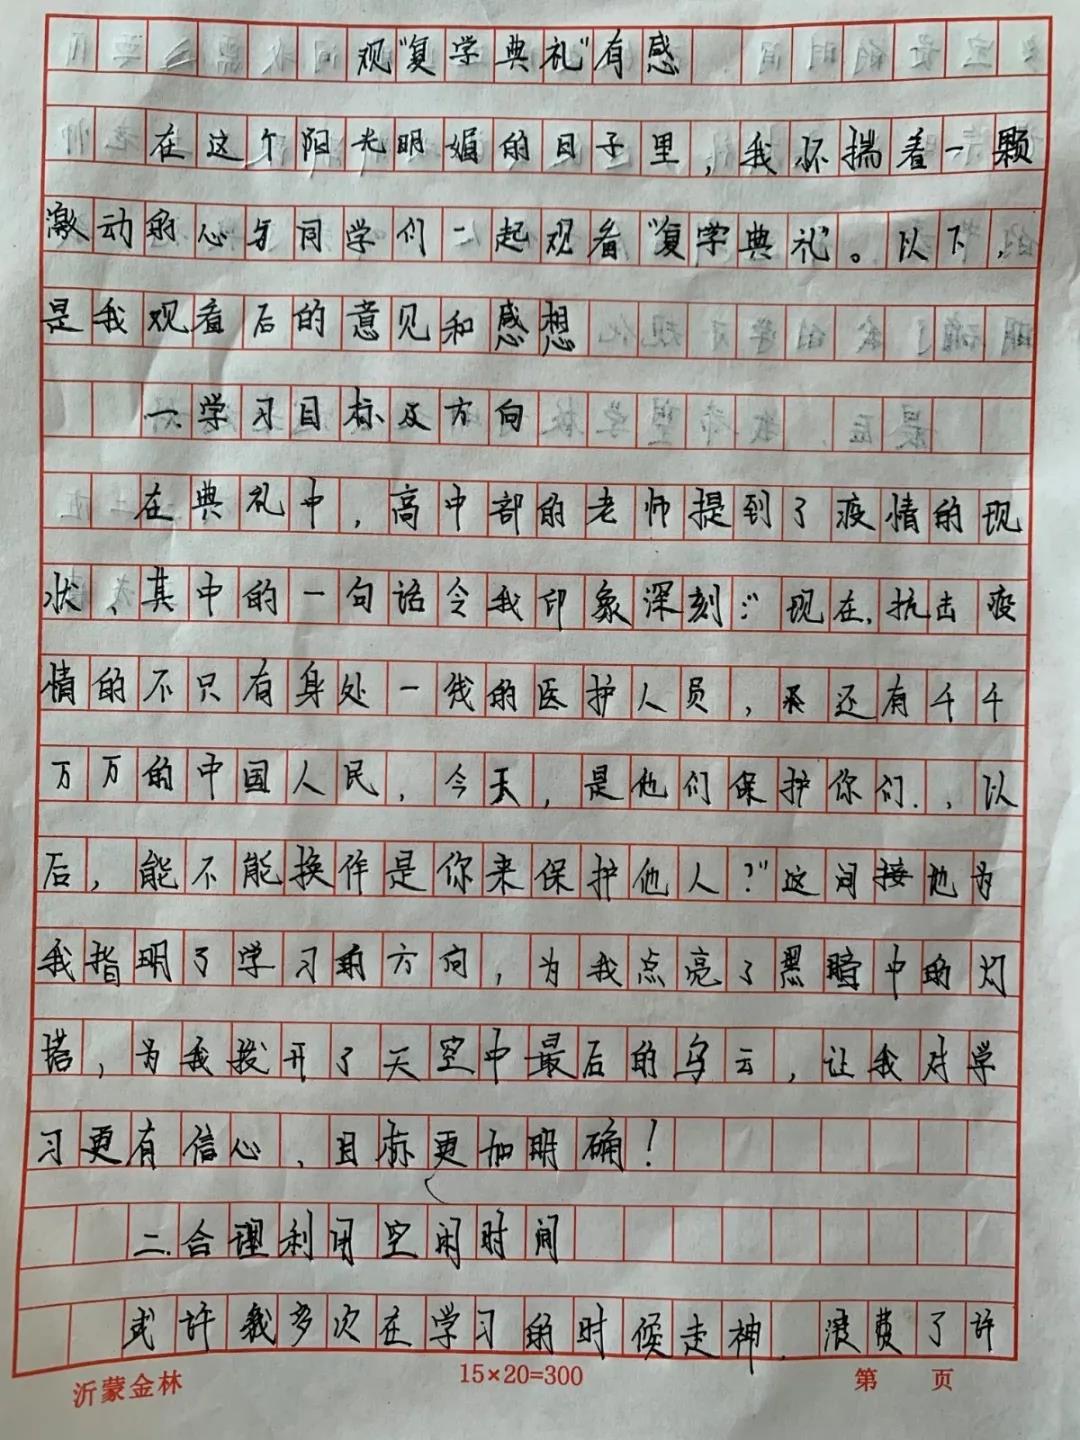 观“复学典礼”有感
在这个阳光明媚的日子里，我怀揣着一颗
激动的心与同学们一起观看“复学典礼”。以下，
是我观看后的意见和感想
一、学习目标及方向
在典礼中，高中部的老师提到了疫情的现
状、其中的一句话令我印象深刻：“现在，抗击疫
情的不只有身处一线的医护人员，还有千千
万万的中国人民，今天，是他们保护你们，以
后，能不能换作是你来保护他人？”这间接地为
我指明了学习的方向，为我点亮了黑暗中的灯
塔，为我拨开了天空中最后的乌云，让我对学
习更有信心，目标更加明确！
二.合理利用空闲时间
或许我多次在学习的时候走神，浪费了许
沂蒙金林 15×20=300 第 页